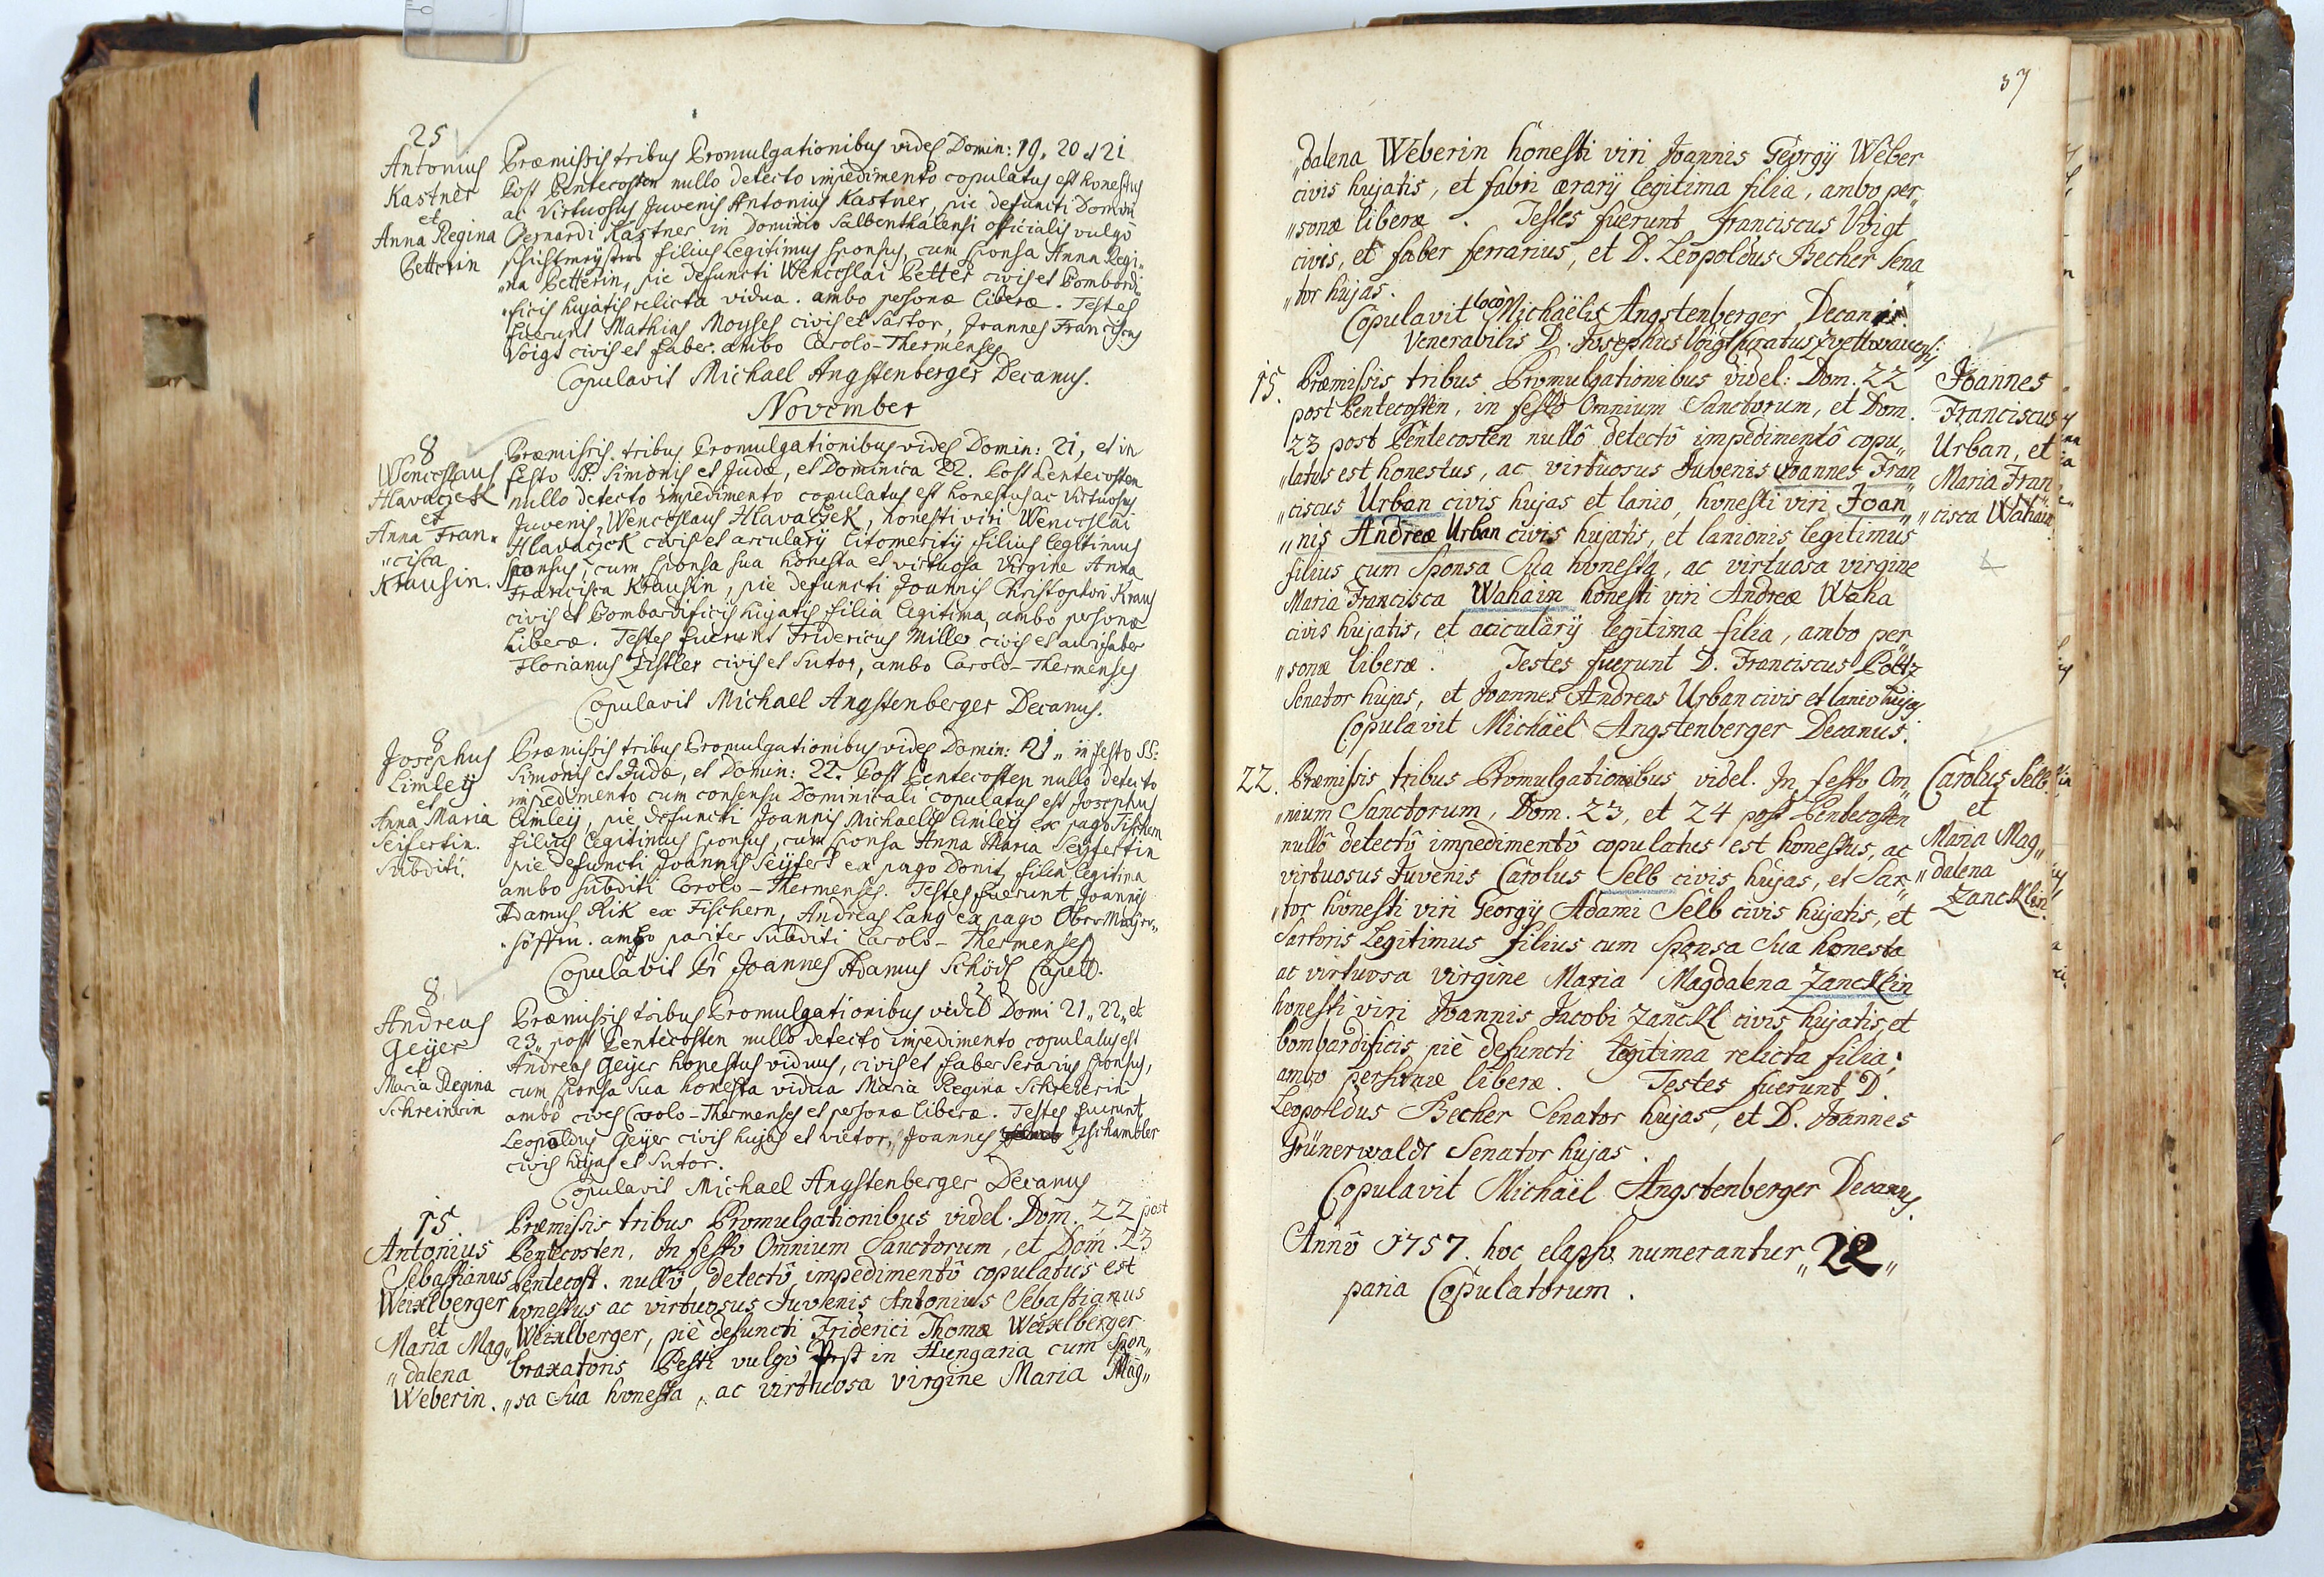 25
Antonius
Kastner
et
Anna Regina
Petterin
Præmissis tribus Promulgationibus videl Domin: 19. 20 et 21
Post Pentecosten nullo detecto impedimento copulatus est honestus
ac Virtuosus Juvenis Antonius Kastner, pie defuncti Domini
Bernardi Kastner in Dominio Salbenthalensi officialis vulgò
Schichtmeysters filius Legitimus Sponsus, cum Sponsa Anna Regi„
„na Petterin, pie defuncti Wenceslai Petter civis et Bombardi„
„ficis hujatis relicta vidua. ambo personæ liberæ. Testes
fuerunt Mathias Moyses civis et Sartor, Joannes Franciscus
Voigt civis et faber. ambo Carolo-Thermenses
Copulavit Michael Angstenberger Decanus.
November
8
Wenceslaus
Hlavaczek
et
Anna Fran„
„cisca
Krausin.
Præmissis tribus Promulgationibus videl Domin: 21, et in
festo SS. Simonis et Judæ, et Dominica 22. Post Pentecosten
nullo detecto impedimento copulatus est honestus ac Virtuosus
Juvenis Wenceslaus Hlavaczek, honesti viri Wenceslai
Hlavaczek civis et arcularÿ Litomeritÿ filius legitimus
sponsus cum sponsa sua honesta et virtuosa Virgine Anna
Francisca Krausin, pie defuncti Joannis Christophori Kraus
civis et Bombardificis hujatis filia legitima, ambo personæ
Liberæ. Testes fuerunt Fridericus Miller civis et aurifaber
Florianus Zistler civis et Sutor, ambo Carolo-Thermenses
Copulavit Michael Angstenberger Decanus.
8
Josephus
Limleÿ
et
Anna Maria
Seifertin.
Subditi.
Præmissis tribus Promulgationibus videl Domin: 21„ in festo SS:
Simonis et Judæ, et Domin: 22. Post Pentecosten nullo detecto
impedimento cum consensu Dominicali copulatus est Josephus
Limleÿ, pie defuncti Joannis Michaelis Limleÿ ex pago Fischern
filius Legitimus sponsus, cum sponsa Anna Maria Seÿfertin
pie defuncti Joannis Seÿfert ex pago Donit, filia legitima
ambo subditi Carolo-Thermenses. Testes fuerunt Joannis
Adamus Rik ex Fischern, Andreas Lang ex pago Ober Maÿer„
„höffen. ambo pariter Subditi Carolo-Thermenses
Copulavit Pr Joannes Adamus Schödl Capell.
8
Andreas
Geÿer
et
Maria Regina
Schreinerin
Præmissis tribus Promulgationibus videl Domi 21„ 22„ et
23„ post Pentecosten nullo detecto impedimento copulatus est
Andreas Geÿer honestus viduus, civis et faber Serarius sponsus,
cum sponsa Sua honesta vidua Maria Regina Schreierin
ambo cives Carolo-Thermenses et personæ liberæ. Testes fuerunt
Leopoldus Geÿer civis hujas et vietor, Joannes Zschambler
civis hujas et Sutor.
Copulavit Michael Angstenberger Decanus
15
Antonius
Sebastianus
Weixlberger
et
Maria Mag„
„dalena
Weberin.
Præmissis tribus Promulgationibus videl. Dom. 22 post
Pentecosten, In festo Omnium Sanctorum, et Dom. 23
Pentecost. nullô detectô impedimentô copulatus est
honestus ac virtuosus Juvenis Antonius Sebastianus
Weixlberger, piè defuncti Friderici Thomæ Weixlberger
braxatoris Pesti vulgò Pest in Hungaria cum Spon„
„sa Sua honesta, ac virtuosa virgine Maria Mag„
37
„dalena Weberin honesti viri Joannis Georgÿ Weber
civis hujatis, et fabri ærarÿ legitima filia, ambo per„
„sonæ liberæ. Testes fuerunt Franciscus Voigt
civis, et faber ferrarius, et D. Leopoldus Becher Sena
„tor hujas.
Copulavit loco Michaëlis Angstenberger Decanis.
Venerabilis D. Josephus Voigt Curatus Zvettbauensis
15.
Præmissis tribus Promulgationibus videl: Dom. 22
post Pentecosten, in festô Omnium Sanctorum, et Dom.
23 post Pentecosten nullô detectô impedimentô copu„
„latus est honestus, ac virtuosus Juvenis Joannes Fran„
„ciscus Urban civis hujas et lanio, honesti viri Joan„
„nis Andreæ Urban civis hujatis, et lanionis legitimus
filius cum Sponsa Sua honesta, ac virtuosa virgine
Maria Francisca Wahain honesti viri Andreæ Waha
civis hujatis, et aciculärÿ legitima filia, ambo per„
„sonæ liberæ. Testes fuerunt D. Franciscus Poltz
Senator hujas, et Joannes Andreas Urban civis et lanio hujas
Copulavit Michaël Angstenberger Decanus.
Joannes
Franciscus
Urban, et
Maria Fran„
„cisca Wahain
22.
Præmissis tribus Promulgationibus videl. In festo Om„
„nium Sanctorum, Dom. 23, et 24 post Pentecosten
nullô detectô impedimentô copulatus est honestus, ac
virtuosus Juvenis Carolus Selb civis hujas, et Sar„
„tor honesti viri Georgÿ Adami Selb civis hujatis, et
Sartoris Legitimus filius cum Sponsa Sua honesta
ac virtuosa virgine Maria Magdalena Zancklin
honesti viri Joannis Jacobi Zanckl civis hujatis, et
bombardificis piè defuncti legitima relicta filia,
ambo personæ liberæ. Testes fuerunt D.
Leopoldus Becher Senator hujas, et D. Joannes
Grünerwaldt Senator hujas.
Copulavit Michaël Angstenberger Decanus.
Carolus Selb
et
Maria Mag„
„dalena
Zancklin.
Annô 1757. hoc elapso numerantur „22„
paria Copulatorum.